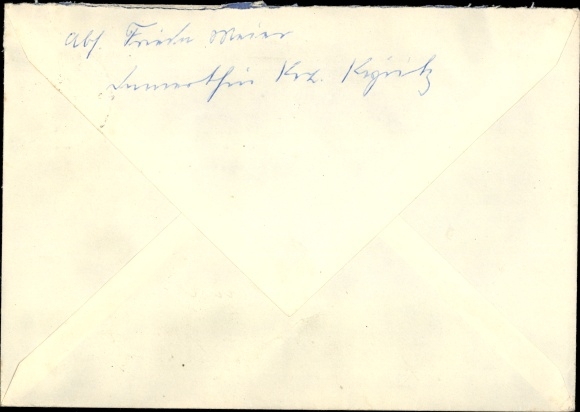 Abs. Frieda Meier
Krs. Kyritz